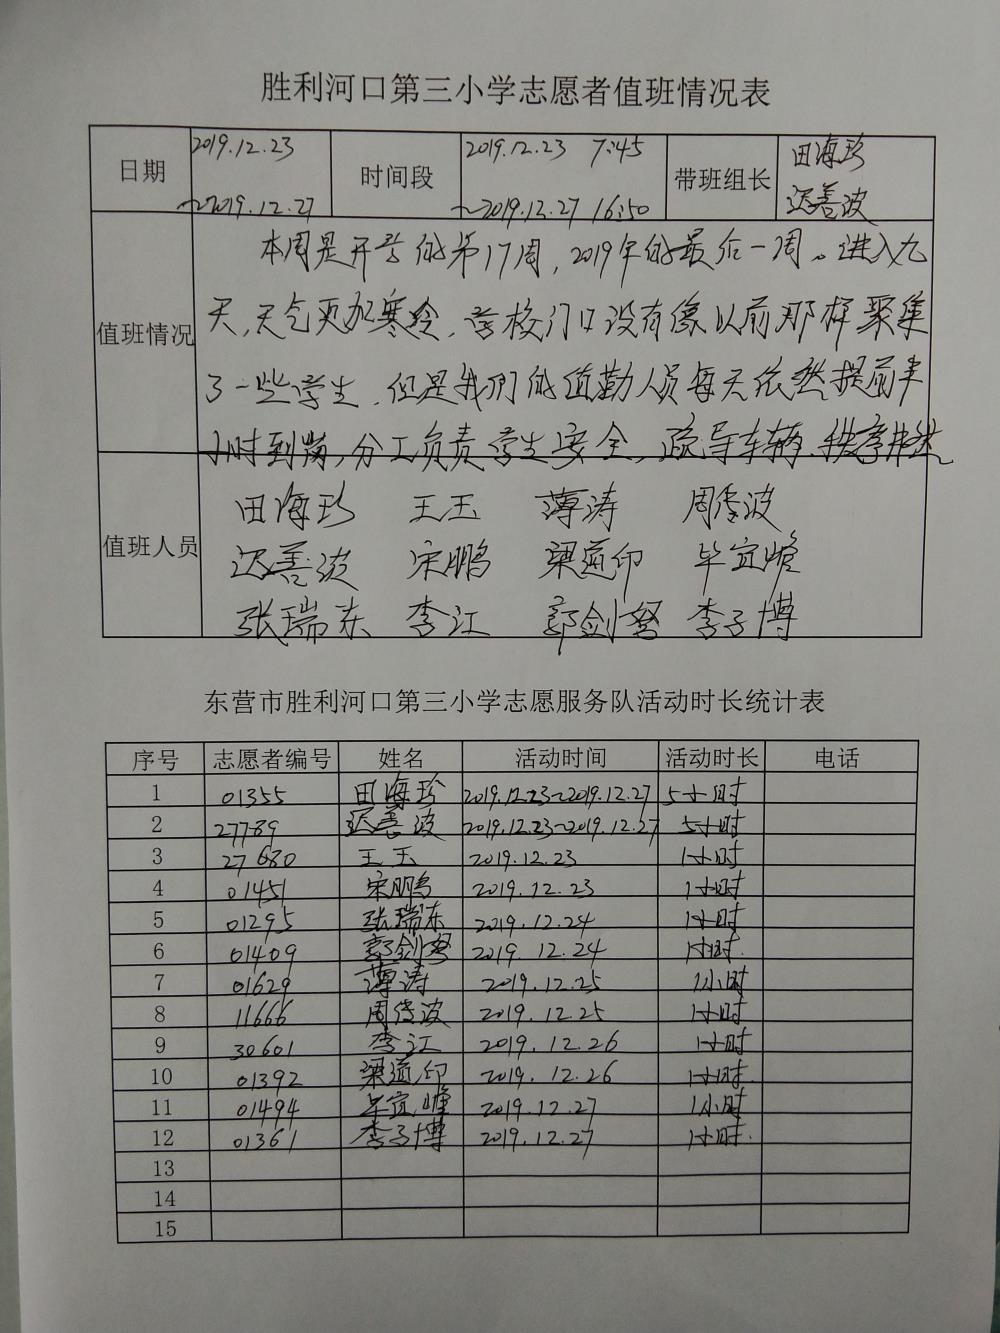 胜利河口第三小学志愿者值班情况表
日期 2019.12.23 ~2019.12.27 时间段 2019.12.23 7:45 ~2019.12.27 16:50 带班组长 田海珍 迟善波
值班情况
本周是开学的第17周,2019年的最后一周。进入九
天,天气更加寒冷,学校门口没有像以前那样聚集
了一些学生,但是我们的值勤人员每天依然提前半
小时到岗,分工负责学生安全,疏导车辆,秩序井然
值班人员
田海珍 王玉 薄涛 周俊波
迟善波 宋鹏 梁道印 毕宜
张瑞东 李江 郭剑 李子博
东营市胜利河口第三小学志愿服务队活动时长统计表
序号 志愿者编号 姓名 活动时间 活动时长 电话
1 01355 田海珍 2019.12.23~2019.12.27 5小时
2 27789 迟善波 2019.12.23~2019.12.27 5小时
3 27680 王玉 2019.12.23 1小时
4 01451 宋鹏 2019.12.23 1小时
5 01295 张瑞东 2019.12.24 1小时
6 01409 郭剑 2019.12.24 1小时.
7 01629 薄涛 2019.12.25 1小时
8 11666 周俊波 2019.12.25 1小时
9 30601 李江 2019.12.26 1小时
10 01392 梁道印 2019.12.26 1小时.
11 01494 毕宜 2019.12.27 1小时
12 01361 李子博 2019.12.27 1小时.
13
14
15